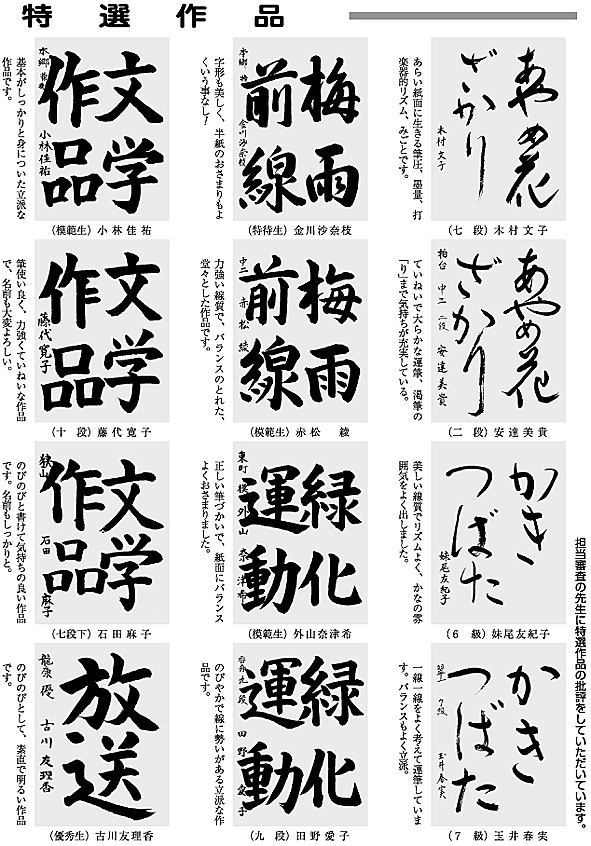 特選作品
担当審査の先生に特選作品の批評をしていただいています。
あやめ花
ざかり
木村文子
あらい紙面に生きる筆圧、墨量、打
楽器的リズム、みごとです。
(七 段) 木村文子
梅雨
前線
本郷 特 金川沙奈枝
字形も美しく、半紙のおさまりもよ
くいう事なし!
(特待生) 金川沙奈枝
文学
作品
本郷
小林佳祐
基本がしっかりと身についた立派な
作品です。
(模範生) 小林佳祐
あやめ花
ざかり
柏台 中二 二段 安達美貴
ていねいで大らかな運筆、渇筆の
「り」まで気持ちが充実している。
(二 段) 安達美貴
梅雨
前線
中二 赤松 綾
力強い線質で、バランスのとれた、
堂々とした作品です。
(模範生) 赤松 綾
文学
作品
藤代寛子
筆使い良く、力強くていねいな作品
で、名前も大変よろしい。
(十 段) 藤代寛子
かき
つばた
妹尾友紀子
美しい線質でリズムよく、かなの雰
囲気をよく出しました。
(6 級) 妹尾友紀子
緑化
運動
東町 模 外山奈津希
正しい筆づかいで、紙面にバランス
よくおさまりました。
(模範生) 外山奈津希
文学
作品
狭山
石田麻子
のびのびと書けて気持ちの良い作品
です。名前もしっかりと。
(七段下) 石田麻子
かき
つばた
7級 玉井春実
一線一線をよく考えて運筆していま
す。バランスもよく立派。
(7 級) 玉井春実
緑化
運動
九段 田野愛子
のびやかで線に勢いがある立派な作
品です。
(九 段) 田野愛子
放送
龍康 優 古川友理香
のびのびとして、素直で明るい作品
です。
(優秀生) 古川友理香